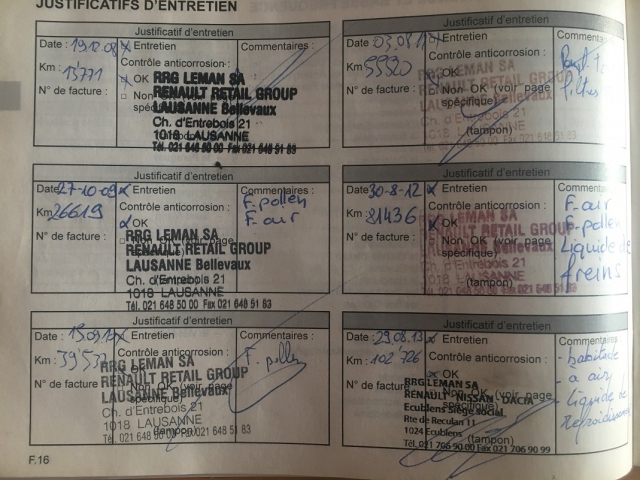 JUSTIFICATIFS D'ENTRETIEN
Justificatif d'entretien
Date : 19.12.08 x Entretien Commentaires :
Km : 13771 Contrôle anticorrosion :
x OK
N° de facture : □ Non OK (voir page
spécifique)
RRG LEMAN SA
RENAULT RETAIL GROUP
LAUSANNE Bellevaux
Ch. d'Entrebois 21
1018 LAUSANNE
Tél. 021 648 50 00 Fax 021 648 51 83
Justificatif d'entretien
Date : 03.08.11 Entretien Commenta
Km : Contrôle anticorrosion :
OK
N° de facture : Non OK (voir page
spécifique)
filtres
LEMAN SA
RENAULT RETAIL GROUP
(tampon)
Justificatif d'entretien
Date 27-10-09 x Entretien Commentaires :
Km 26619 Contrôle anticorrosion : F. pollen
x OK F. air
N° de facture : □ Non OK (voir page
RRG LEMAN SA
RENAULT RETAIL GROUP
LAUSANNE Bellevaux
Ch. d'Entrebois 21
1018 LAUSANNE
Tél. 021 648 50 00 Fax 021 648 51 83
Justificatif d'entretien
Date 30-8-12 x Entretien Commenta
Km : 81436 Contrôle anticorrosion : F. air
x OK F. pollen
N° de facture : Non OK (voir page Liquide de
spécifique) freins
LEMAN SA
(tampon)
Justificatif d'entretien
Date : x Entretien Commentaires :
Km : Contrôle anticorrosion : F. pollen
OK
N° de facture : Non OK (voir page
spécifique)
RRG LEMAN SA
RENAULT RETAIL GROUP
LAUSANNE Bellevaux
Ch. d'Entrebois 21
1018 LAUSANNE
(tampon)
Tél. 021 648 50 00 Fax 021 648 51 83
Justificatif d'entretien
Date : 29.08.13 x Entretien Commentaires
Km : 102'726 Contrôle anticorrosion : - habitacle
x OK - a air
N° de facture Non OK (voir page - liquide de
spécifique) refroidissement
RRG LEMAN SA
RENAULT NISSAN DACIA
Ecublens Siège social
Rte de Reculan 11
1024 Ecublens
(tampon)
TÉL. 021 706 90 00 Fax 021 706 90 99
F.16